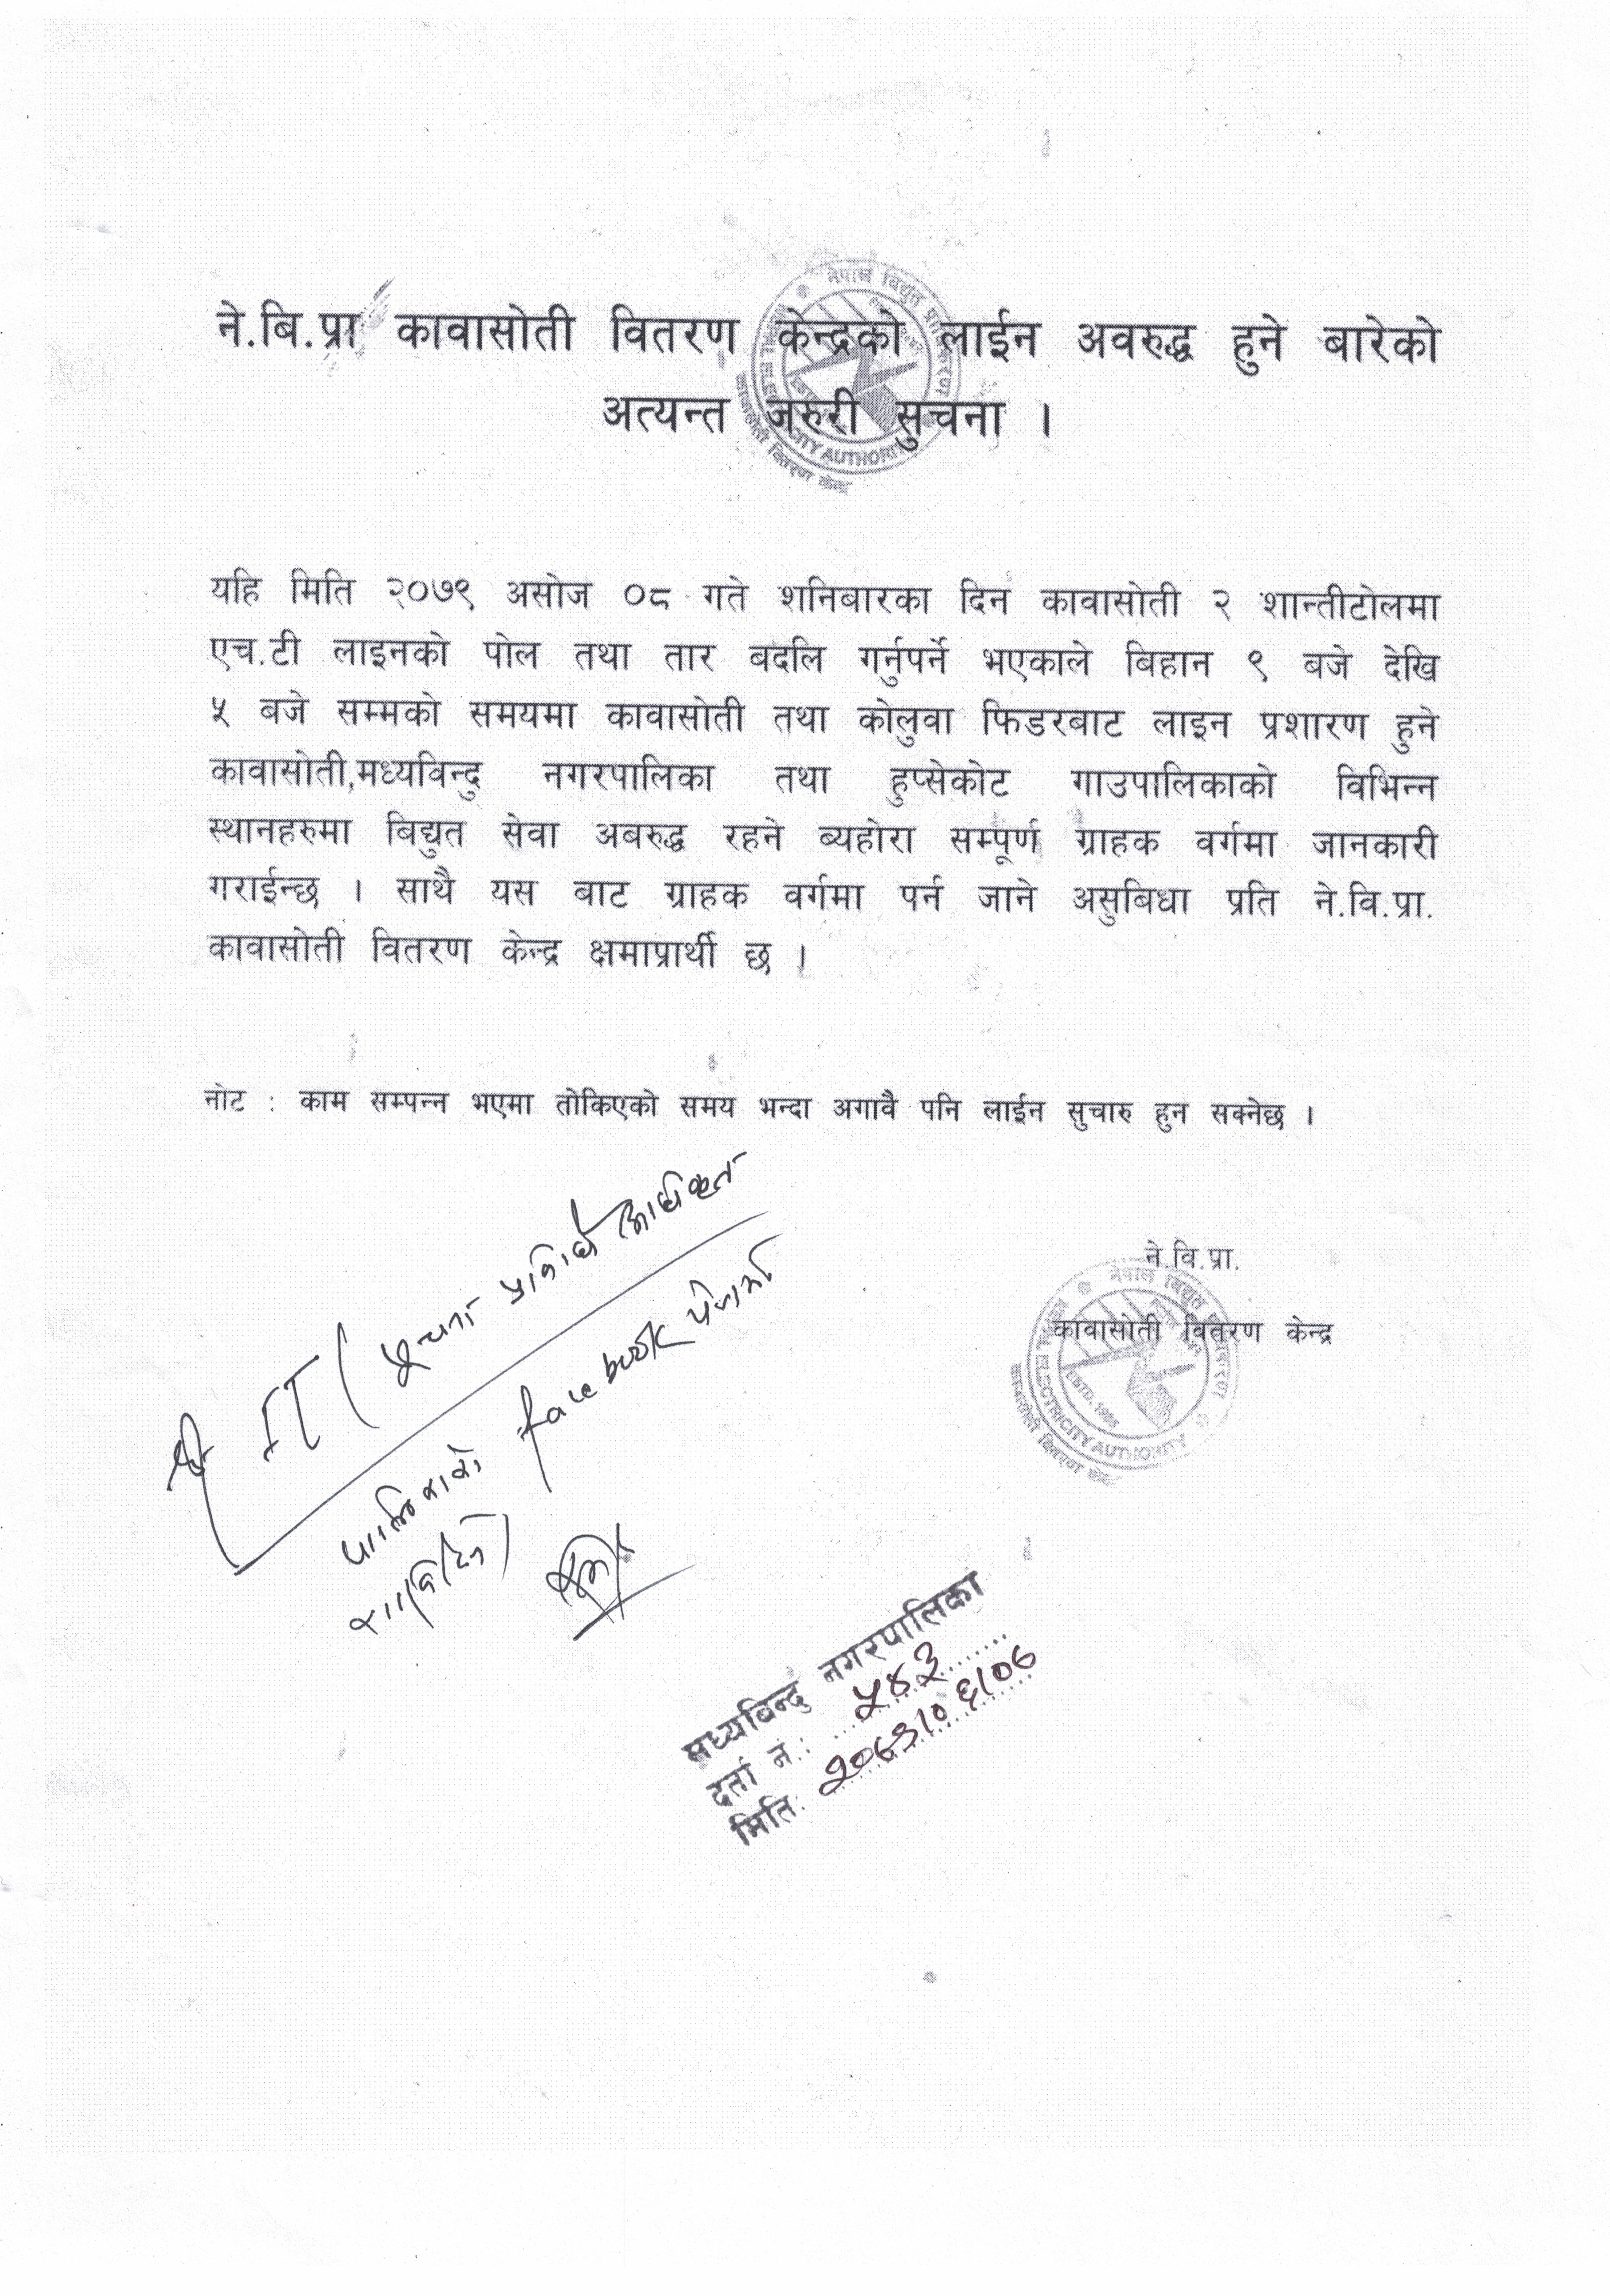 ने.बि.प्रा कावासोती वितरण केन्द्रको लाईन अवरुद्ध हुने बारेको
अत्यन्त जरुरी सुचना ।
नेपाल विद्युत प्राधिकरण
NEPAL ELECTRICITY AUTHORITY
कावासोती वितरण केन्द्र
यहि मिति २०७९ असोज ०८ गते शनिबारका दिन कावासोती २ शान्तीटोलमा
एच.टी लाइनको पोल तथा तार बदलि गर्नुपर्ने भएकाले बिहान ९ बजे देखि
५ बजे सम्मको समयमा कावासोती तथा कोलुवा फिडरबाट लाइन प्रशारण हुने
कावासोती,मध्यविन्दु नगरपालिका तथा हुप्सेकोट गाउपालिकाको विभिन्न
स्थानहरुमा बिद्युत सेवा अबरुद्ध रहने ब्यहोरा सम्पूर्ण ग्राहक वर्गमा जानकारी
गराईन्छ । साथै यस बाट ग्राहक वर्गमा पर्न जाने असुबिधा प्रति ने.वि.प्रा.
कावासोती वितरण केन्द्र क्षमाप्रार्थी छ ।
नोट : काम सम्पन्न भएमा तोकिएको समय भन्दा अगावै पनि लाईन सुचारु हुन सक्नेछ ।
श्री IT / सूचना प्रविधि अधिकृत
पालिकाको facebook पेजमा
राखिदिने
ने.वि.प्रा.
कावासोती वितरण केन्द्र
नेपाल विद्युत प्राधिकरण
NEPAL ELECTRICITY AUTHORITY
ESTD. 1985
कावासोती वितरण केन्द्र
मध्यविन्दु नगरपालिका
दर्ता नं.: ५४३
मिति: २०७९/०६/०७